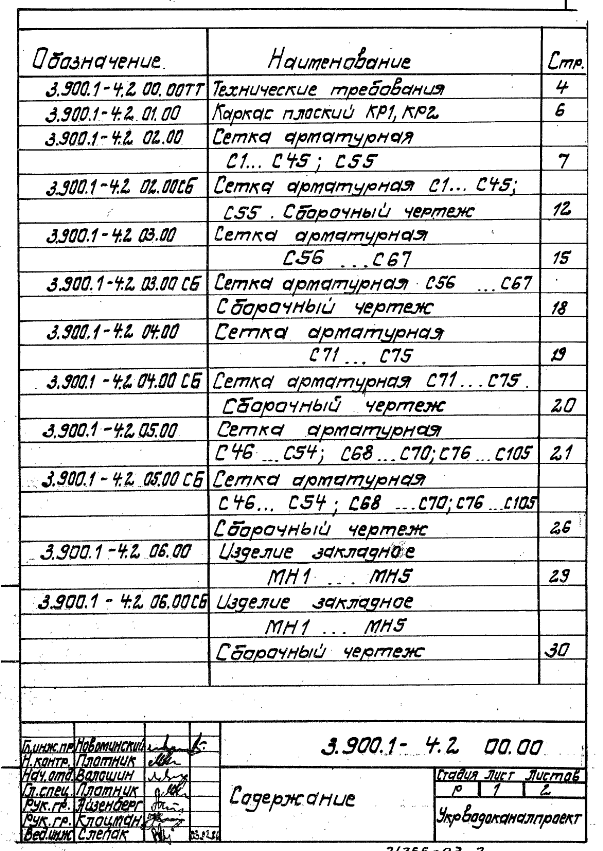 Обозначение. Наименование Стр.
3.900.1-4.2 00.00ТТ Технические требования 4
3.900.1-4.2 01.00 Каркас плоский КР1, КР2 6
3.900.1-4.2 02.00 Сетка арматурная
С1... С45; С55 7
3.900.1-4.2 02.00СБ Сетка арматурная С1... С45;
С55. Сборочный чертеж 12
3.900.1-4.2 03.00 Сетка арматурная
С56 ...С67 15
3.900.1-4.2 03.00 СБ Сетка арматурная С56 ...С67
Сборочный чертеж 18
3.900.1-4.2 04.00 Сетка арматурная
С71 ... С75 19
3.900.1-4.2 04.00 СБ Сетка арматурная С71... С75.
Сборочный чертеж 20
3.900.1-4.2 05.00 Сетка арматурная
С46 ...С54; С68 ...С70; С76 ...С105 21
3.900.1-4.2 05.00 СБ Сетка арматурная
С46... С54; С68 ...С70; С76 ...С105
Сборочный чертеж 26
3.900.1-4.2 06.00 Изделие закладное
МН1 ... МН5 29
3.900.1-4.2 06.00СБ Изделие закладное
МН1 ... МН5
Сборочный чертеж 30
3.900.1- 4.2 00.00
Гл.инж.пр. Новоминский
Н.контр. Плотник
Нач.отд. Волошин
Гл.спец. Плотник
Рук.гр. Айзенберг
Рук.гр. Клоцман
Вед.инж. Слепак
Содержание
Стадия Лист Листов
Р 1 2
Укрводоканалпроект